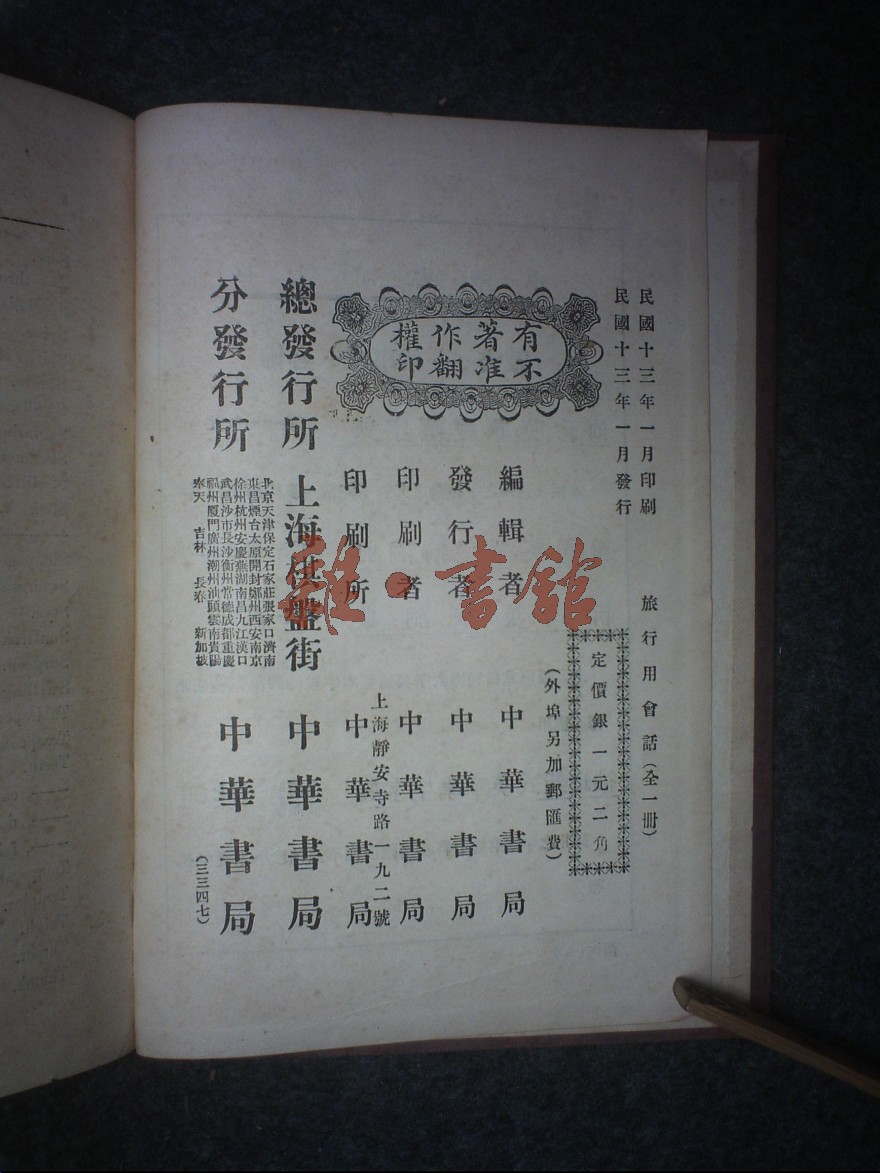 民國十三年一月印刷
民國十三年一月發行
旅行用會話(全一冊)
定價銀一元二角
(外埠另加郵匯費)
有著作權
不准翻印
編輯者 中華書局
發行者 中華書局
印刷者 中華書局
上海靜安寺路一九二號
印刷所 中華書局
總發行所 上海棋盤街 中華書局
分發行所
北京天津保定石家莊張家口濟南
東昌煙台太原開封鄭州西安南京
徐州杭州安慶蕪湖南昌九江漢口
武昌沙市長沙衡州常德成都重慶
福州廈門廣州潮州汕頭雲南貴陽
奉天 吉林 長春 新加坡
中華書局
(三三四七)
雜·書館